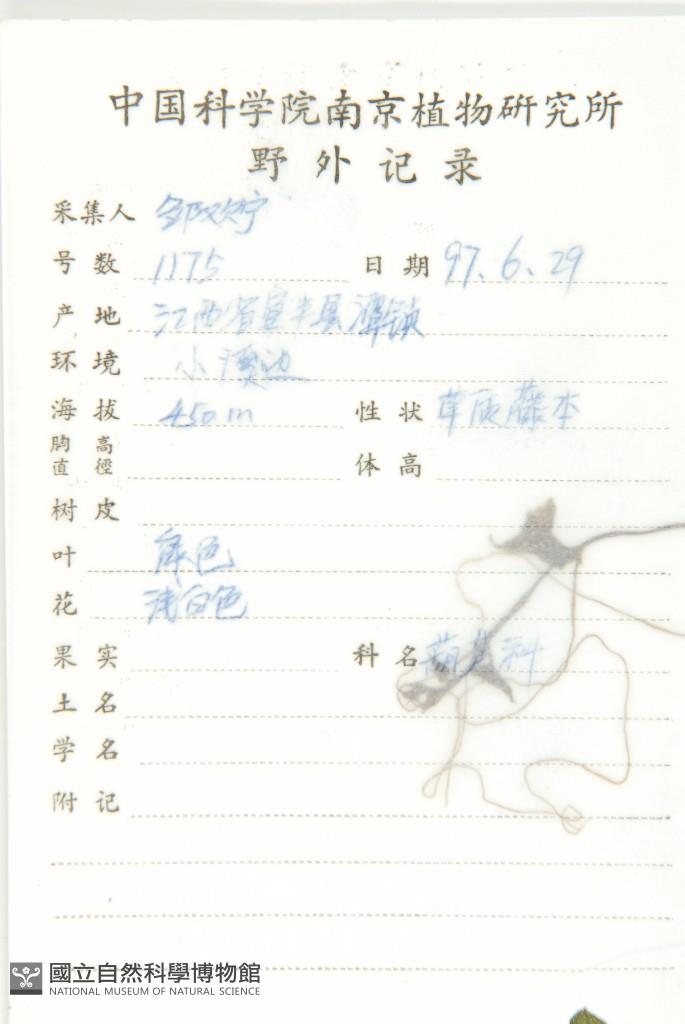 中国科学院南京植物研究所
野外记录
采集人
号数 1175 日期 97.6.29
产地 江西省宜丰县潭镇
环境 小溪边
海拔 450m 性状 草质藤本
胸高直徑 体高
树皮
叶 灰色
花 浅白色
果实 科名 葫芦科
土名
学名
附记
國立自然科學博物館
NATIONAL MUSEUM OF NATURAL SCIENCE